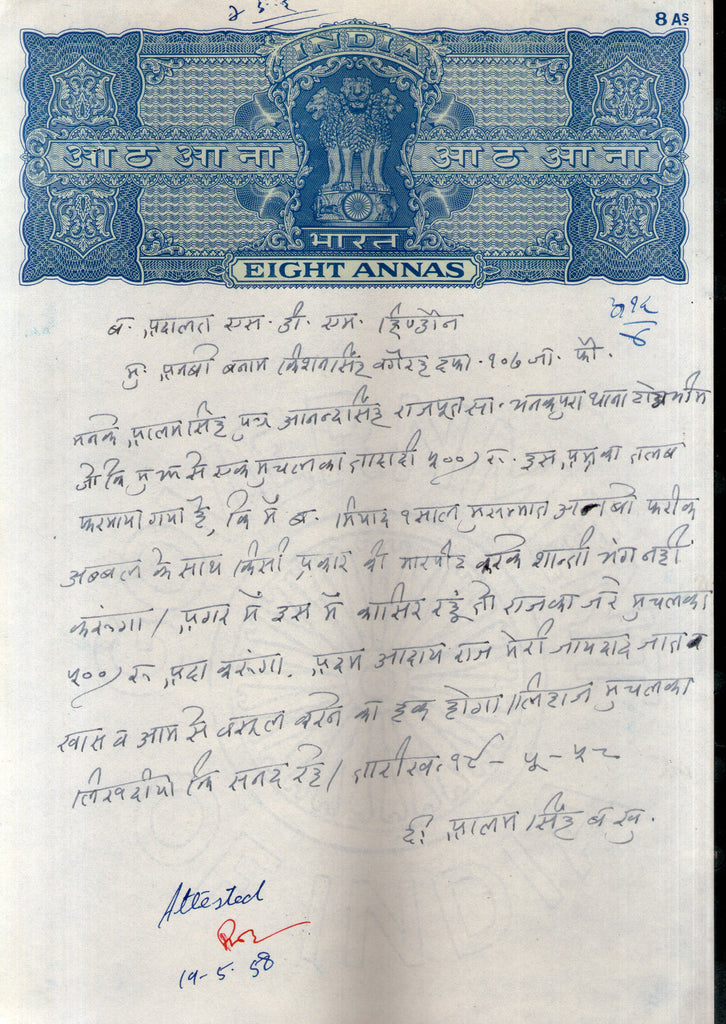 8 As
INDIA
आठ आना आठ आना
भारत
EIGHT ANNAS
ब. अदालत एस. डी. एम. हिण्डौन
मु. अनबी बनाम किशनसिंह वगैरह दफा. १०७ जा. फौ.
मनके आलमसिंह पुत्र आनन्दसिंह राजपूत सा. थाना टोडाभीम
जो कि मुझ से एक मुचलका तादादी ५००) रु. इस अम्र का तलब
फरमाया गया है, कि मैं ब. मियाद १ साल मुसम्मात अनबी फरीक
अव्वल के साथ किसी प्रकार की मारपीट करके शान्ती भंग नहीं
करूंगा / अगर मैं इस में कासिर रहूं तो राज का जरे मुचलका
५००) रु अदा करूंगा. अदम आदाय राज मेरी जायदाद जात व
खास व आम से वसूल करने का हक होगा / लिहाजा मुचलका
लिख दीया कि सनद रहे / तारीख १९ - ५ - ५८
द: आलम सिंह ब खु.
Attested
19-5-58